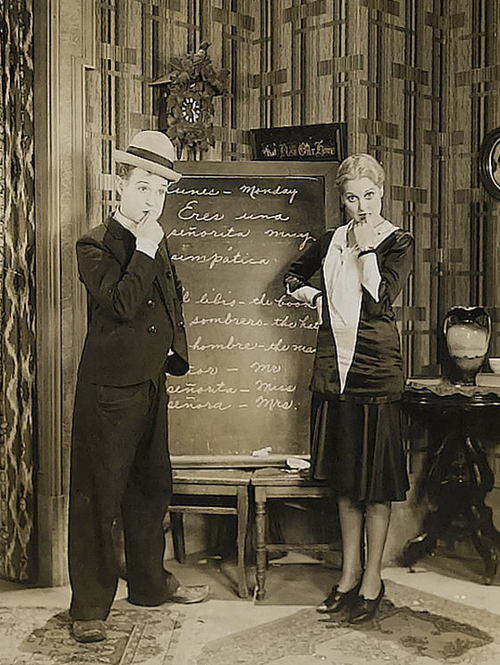 Lunes - Monday
Eres una
señorita muy
simpática.
l libis - the book
sombrero - the hat
hombre - the ma
or - Mr
señorita - Miss
señora - Mrs.